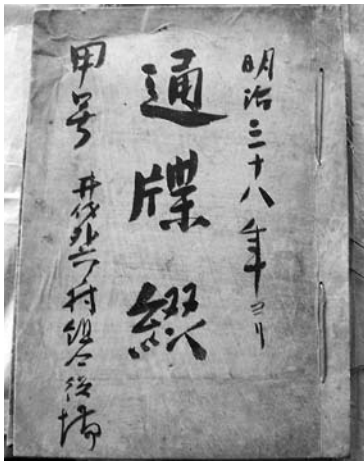 明治三十八年ヨリ
通牒綴
甲号 井伐外六ヶ村組合役場